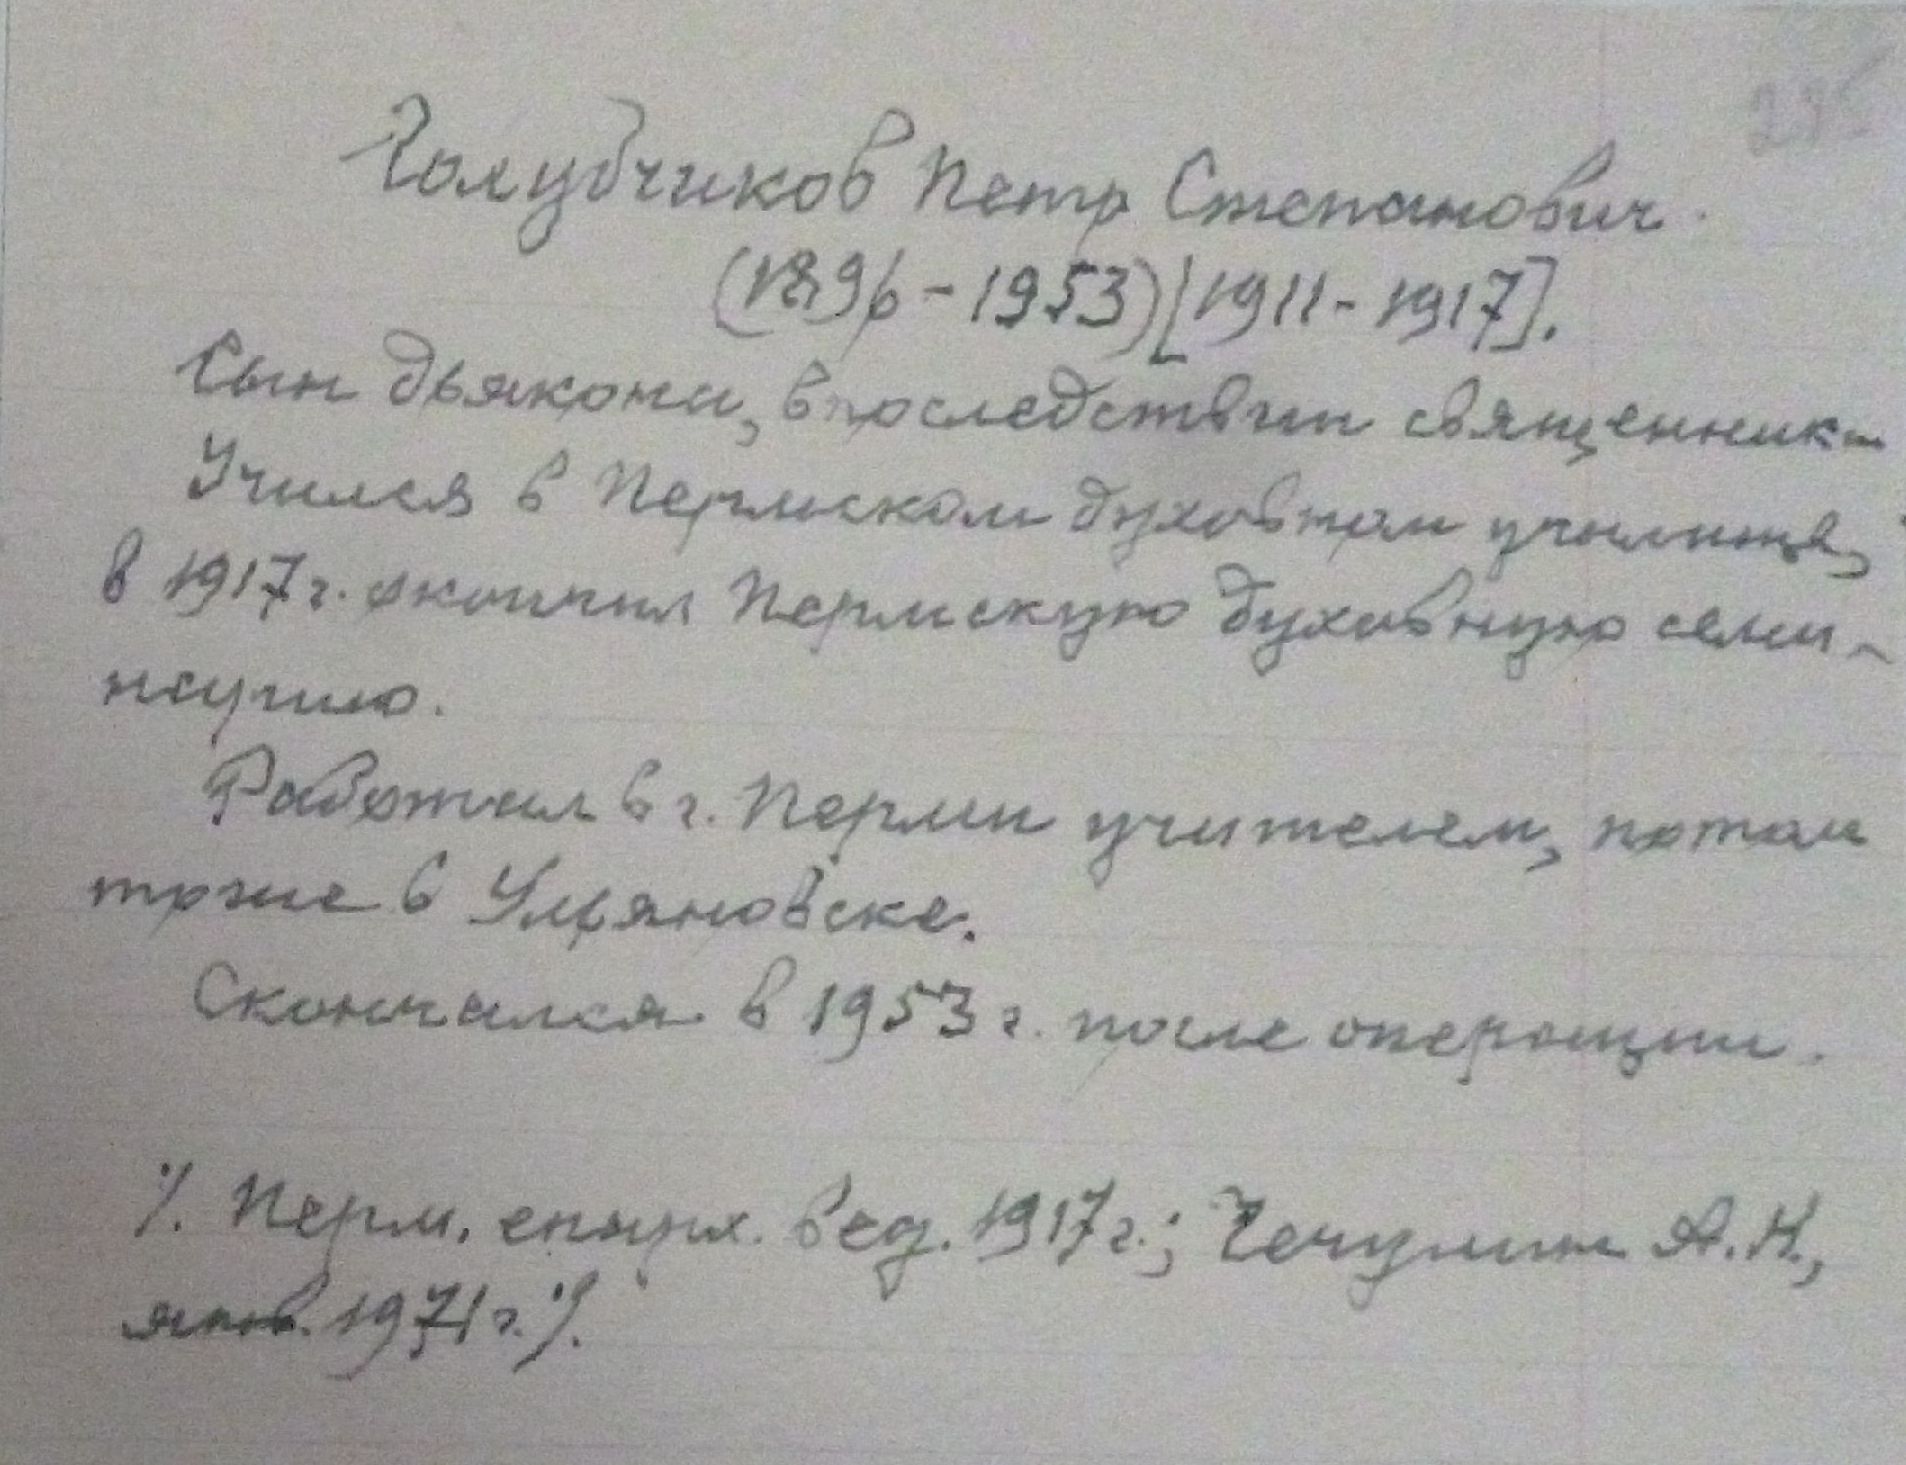 Голубчиков Петр Степанович.
(1896-1953) [1911-1917].
Сын дьякона, впоследствии священника
Учился в Пермском духовном училище,
в 1917 г. окончил Пермскую духовную семи-
нарию.
Работал в г. Перми учителем, потом
тоже в Ульяновске.
Скончался в 1953 г. после операции.
%. Перм. епарх. вед. 1917 г.; Чечулин А.Н.,
янв. 1971 г. %.